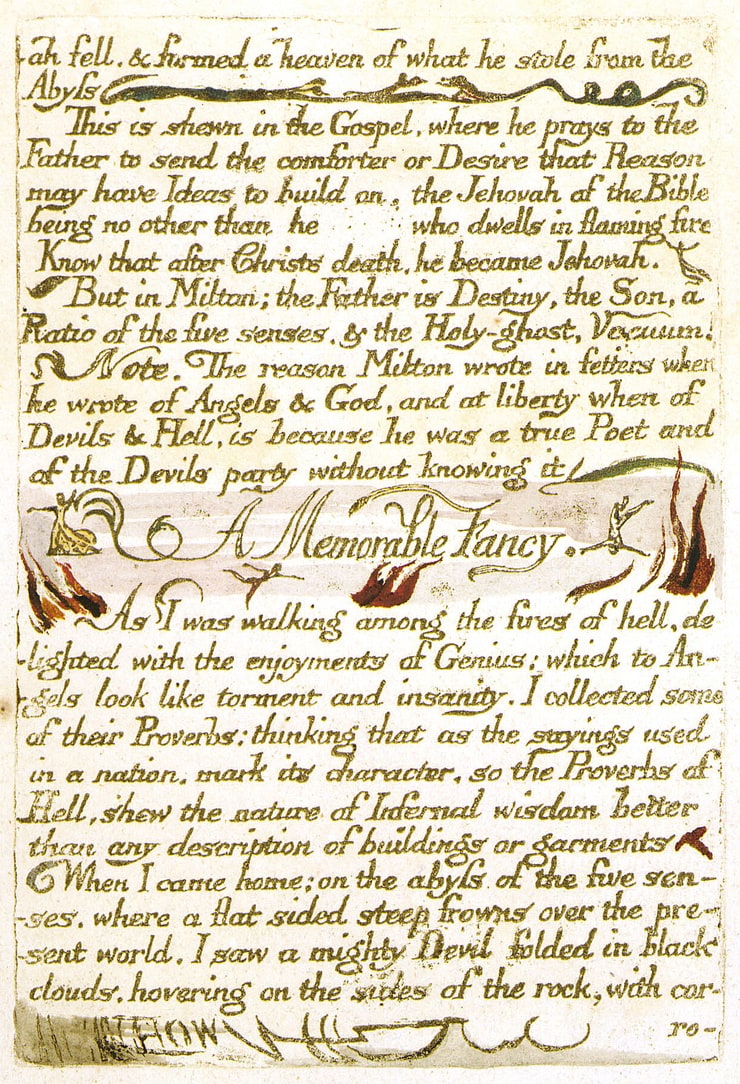 -ah fell. & formed a heaven of what he stole from the
Abyss
This is shewn in the Gospel, where he prays to the
Father to send the comforter or Desire that Reason
may have Ideas to build on, the Jehovah of the Bible
being no other than he who dwells in flaming fire
Know that after Christs death, he became Jehovah.
But in Milton; the Father is Destiny, the Son, a
Ratio of the five senses. & the Holy-ghost, Vacuum!
Note. The reason Milton wrote in fetters when
he wrote of Angels & God, and at liberty when of
Devils & Hell, is because he was a true Poet and
of the Devils party without knowing it
A Memorable Fancy.
As I was walking among the fires of hell, de
-lighted with the enjoyments of Genius; which to An-
-gels look like torment and insanity. I collected some
of their Proverbs: thinking that as the sayings used
in a nation, mark its character, so the Proverbs of
Hell, shew the nature of Infernal wisdom better
than any description of buildings or garments
When I came home; on the abyss of the five sen-
-ses. where a flat sided steep frowns over the pre-
-sent world. I saw a mighty Devil folded in black
clouds. hovering on the sides of the rock, with cor-
ro-